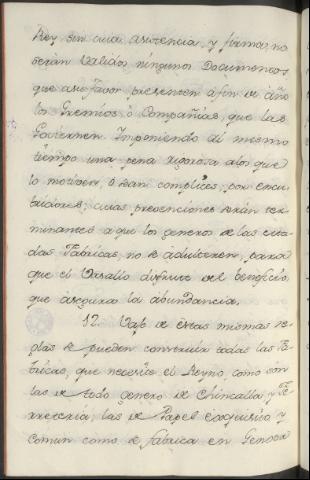 Rey sin cuia asistencia, y firma, no
serán validos ningunos Documentos
que á su favor presenten á fin de año
los Gremios ó Compañias, que las
Governen. Imponiendo al mismo
tiempo una pena rigorosa alos que
lo motiven, ó sean complices, por encu
bridores; cuias prevenciones serán ter
minantes a que los generos de las cita
das Fabricas, no se adulteren, para
que el Vasallo disfrute del beneficio,
que asegura la abundancia.
12. Vajo de estas mismas re
glas se pueden construir todas las Fa
bricas, que necesite el Reyno, como son
las de todo genero de Chincalla y Fe
rreteria; las de Papel exquisito, y
comun como se fabrica en Genova